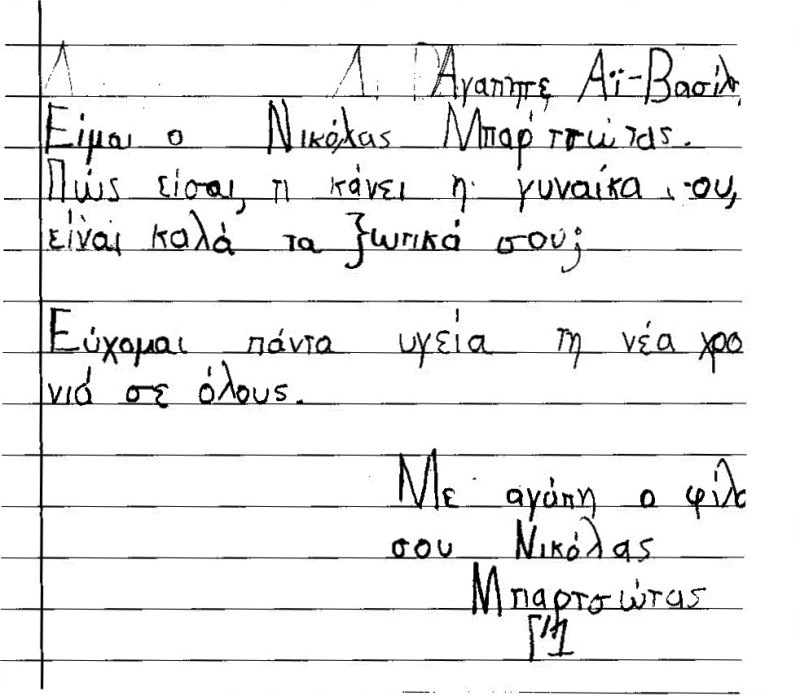 Αγαπητέ Αϊ-Βασίλ
Είμαι ο Νικόλας Μπαρτσώτας.
Πώς είσαι, τι κάνει η γυναίκα σου,
είναι καλά τα ξωτικά σου;
Εύχομαι πάντα υγεία τη νέα χρο
νιά σε όλους.
Με αγάπη ο φίλο
σου Νικόλας
Μπαρτσώτας
Γ'1